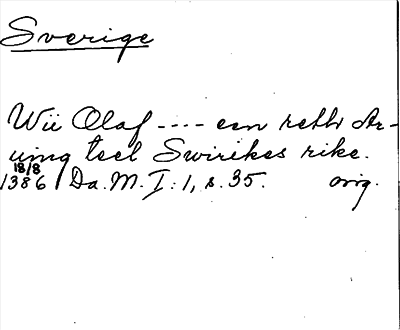 Sverige
Wii Olaf ---- een rethr Ar-
uing teel Swirikes rike.
18/8
1386 Da. M. I: 1, s. 35. orig.